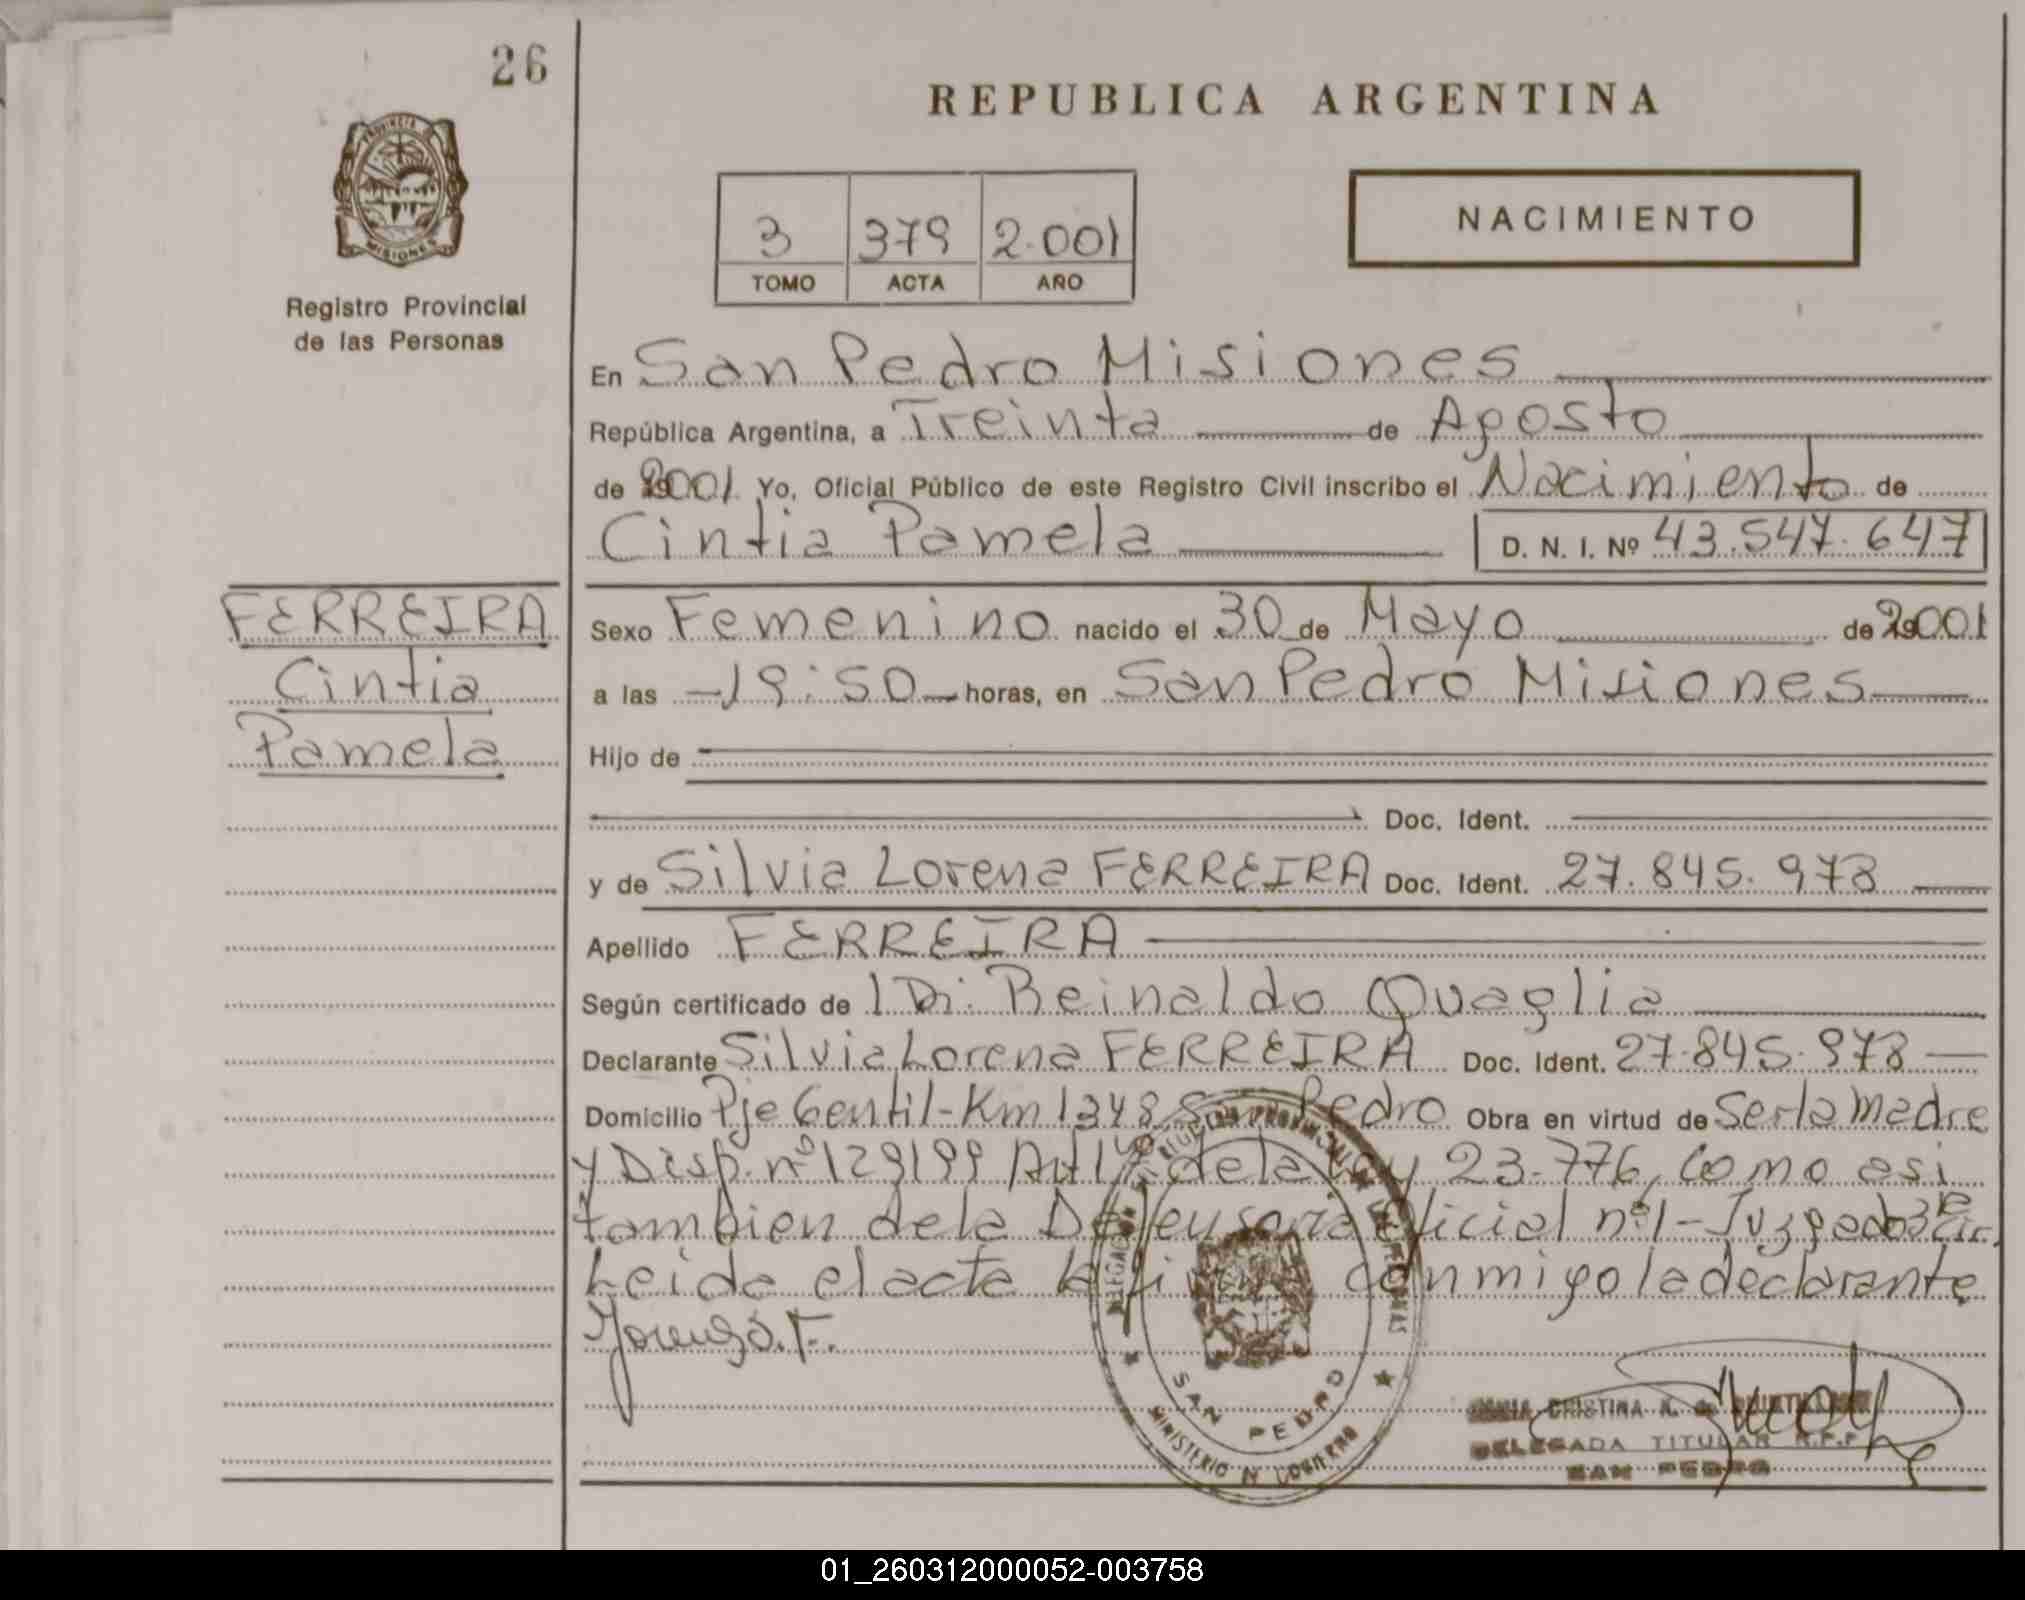 26
REPUBLICA ARGENTINA
PROVINCIA DE
MISIONES
Registro Provincial
de las Personas
3 379 2.001
TOMO ACTA AÑO
NACIMIENTO
En San Pedro Misiones
República Argentina, a Treinta de Agosto
de 2001 Yo, Oficial Público de este Registro Civil inscribo el Nacimiento de
Cintia Pamela D. N. I. Nº 43.547.647
FERREIRA
Cintia
Pamela
Sexo Femenino nacido el 30 de Mayo de 2001
a las 19:50 horas, en San Pedro Misiones
Hijo de
Doc. Ident.
y de Silvia Lorena FERREIRA Doc. Ident. 27.845.973
Apellido FERREIRA
Según certificado de Dr. Reinaldo Quaglia
Declarante Silvia Lorena FERREIRA Doc. Ident. 27.845.973
Domicilio Pje Gentil-Km 1348 San Pedro Obra en virtud de Ser la Madre
y Disp. nº 129199 de la Ley 23.776, como asi
tambien de la Defensoria Oficial nº1-Juzgado
Leida el acta la conmigo la declarante
SAN PEDRO
MINISTERIO DE GOBIERNO
CRISTINA
DELEGADA TITULAR R.P.P.
SAN PEDRO
01_260312000052-003758